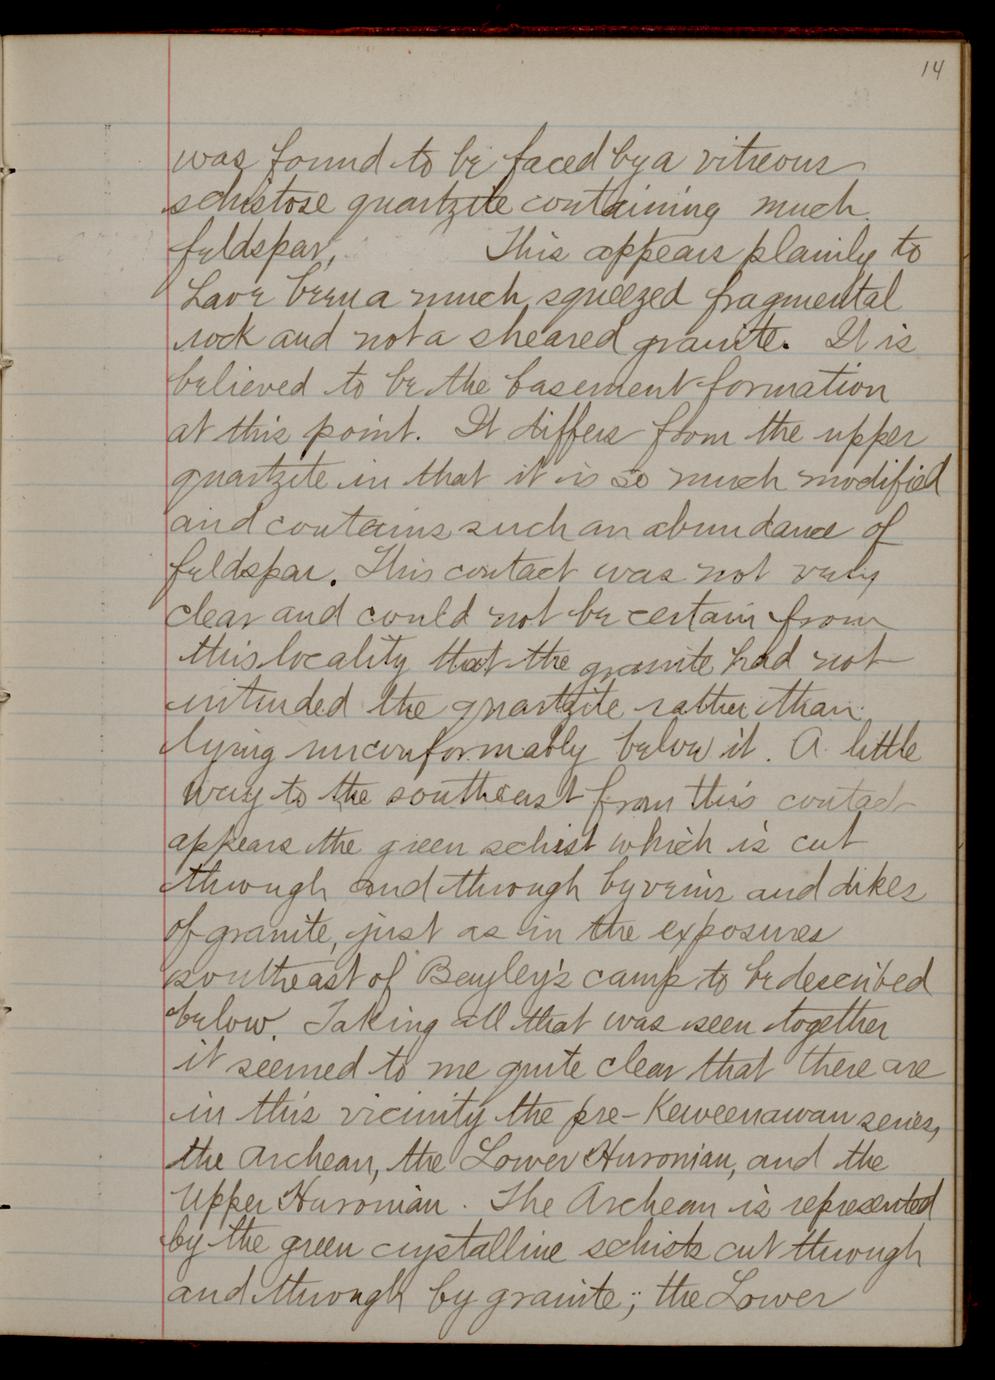 14
was found to be faced by a vitreous
schistose quartzite containing much
feldspar. This appears plainly to
have been a much squeezed fragmental
rock and not a sheared granite. It is
believed to be the basement formation
at this point. It differs from the upper
quartzite in that it is so much modified
and contains such an abundance of
feldspar. This contact was not very
clear and could not be certain from
this locality that the granite had not
intruded the quartzite rather than
lying unconformably below it. A little
way to the southeast from this contact
appears the green schist which is cut
through and through by veins and dikes
of granite, just as in the exposures
southeast of Bayley's camp to be described
below. Taking all that was seen together
it seemed to me quite clear that there are
in this vicinity the pre-Keweenawan series,
the Archean, the Lower Huronian, and the
Upper Huronian. The Archean is represented
by the green crystalline schists cut through
and through by granite; the Lower